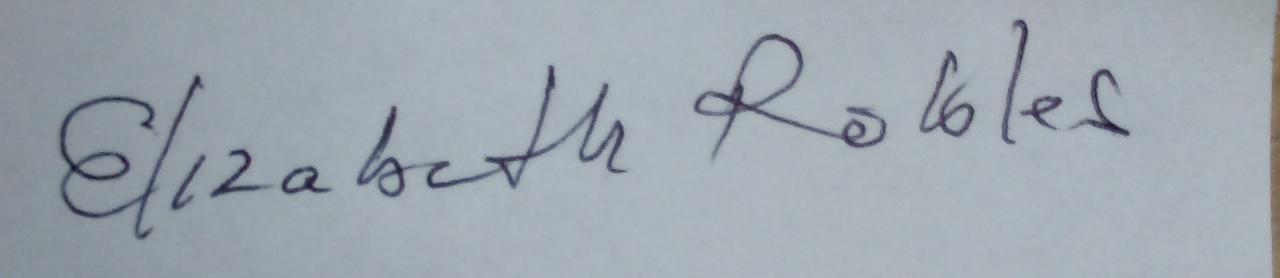 Elizabeth Robles